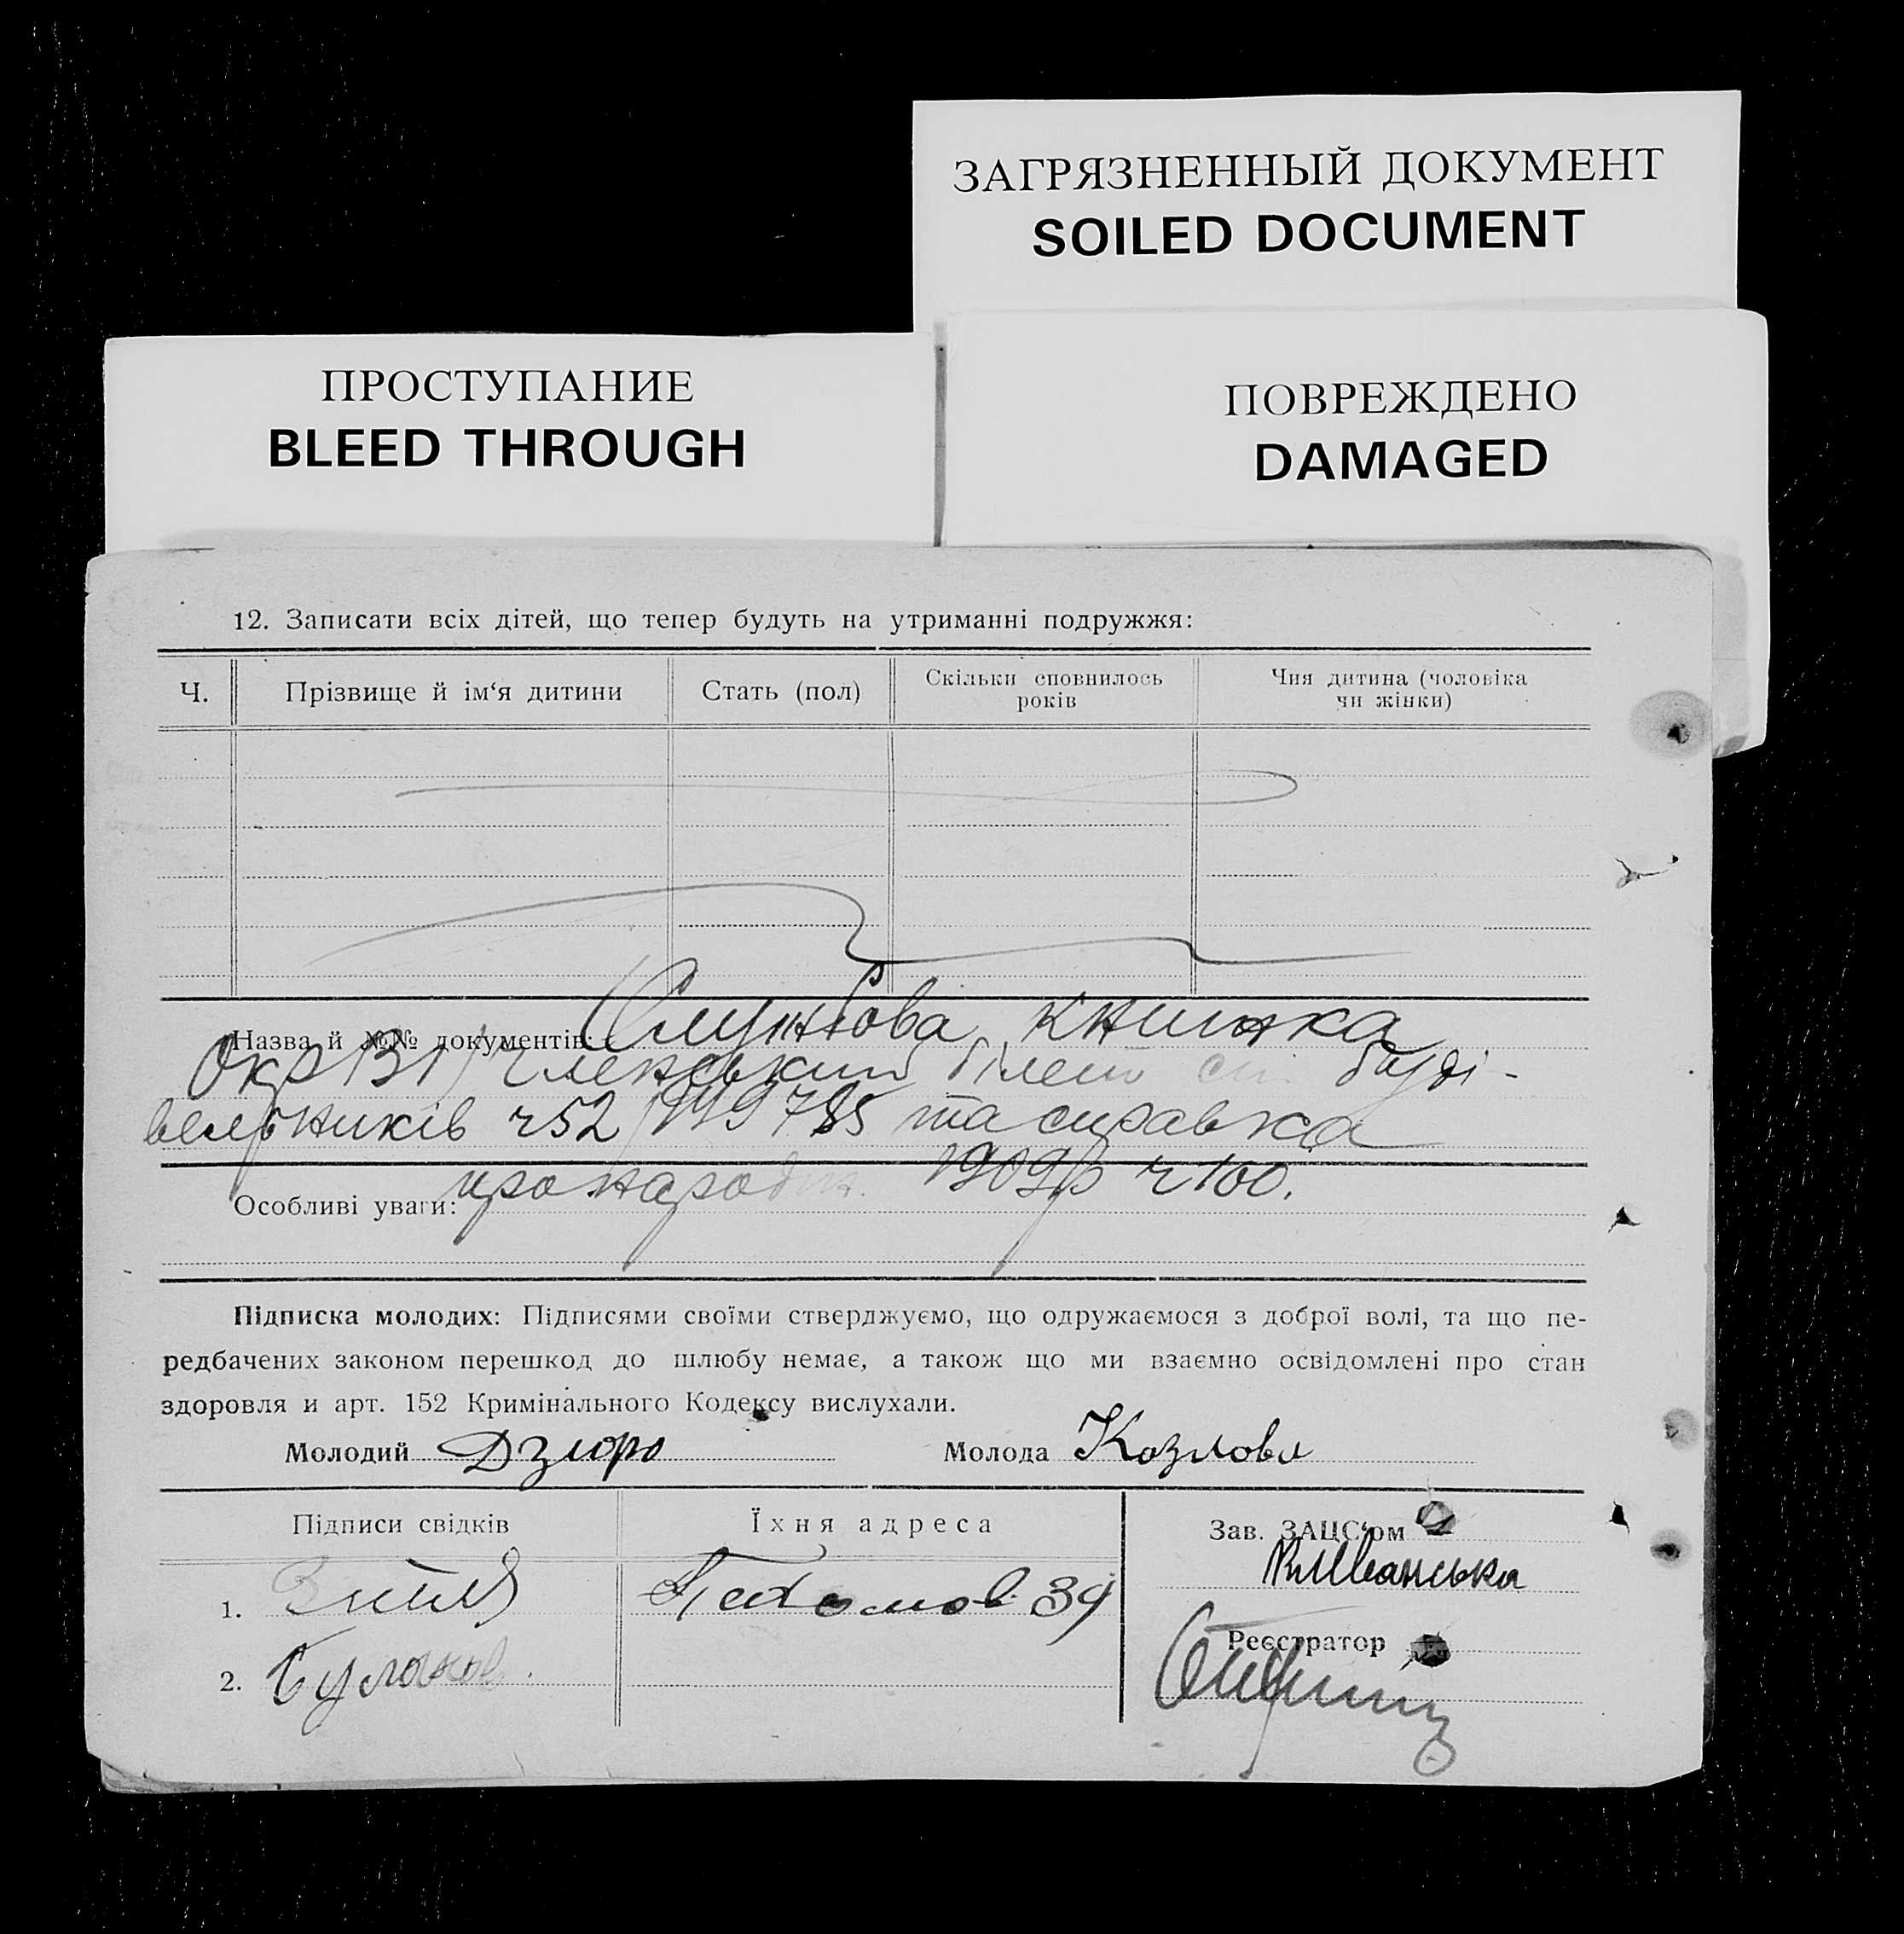 ЗАГРЯЗНЕННЫЙ ДОКУМЕНТ
SOILED DOCUMENT
ПРОСТУПАНИЕ
BLEED THROUGH
ПОВРЕЖДЕНО
DAMAGED
12. Записати всіх дітей, що тепер будуть на утриманні подружжя:
Ч. Прізвище й ім‘я дитини Стать (пол) Скільки сповнилось років Чия дитина (чоловіка чи жінки)
Назва й №№ документів: Службова книжка
Окр членський білет буді-
вельників ч 52 та справка
про народ 1909 р ч 100.
Особливі уваги:
Підписка молодих: Підписями своїми стверджуємо, що одружаємося з доброї волі, та що пе-
редбачених законом перешкод до шлюбу немає, а також що ми взаємно освідомлені про стан
здоровля и арт. 152 Кримінального Кодексу вислухали.
Молодий Дзюро Молода Козлова
Підписи свідків Їхня адреса Зав. ЗАЦС‘ом
1. 39
Реєстратор
2.